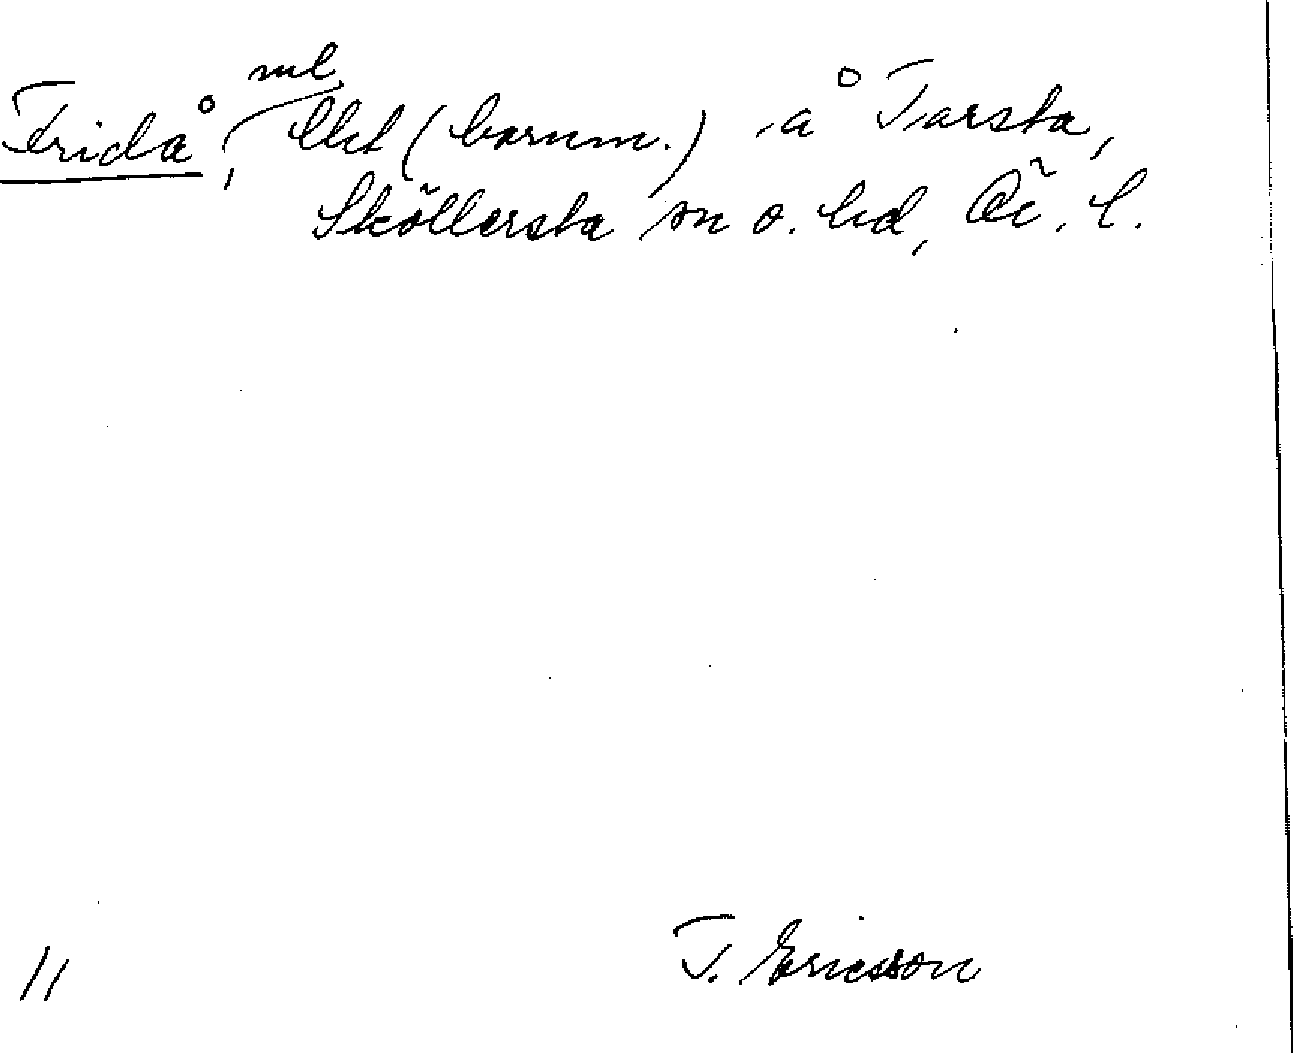 Fridå, lht (barnm.) å Tarsta,
Sköllersta sn o. hd, Ör. l.
T. Ericsson
11